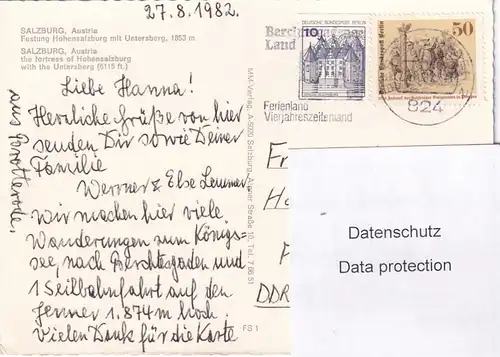 27.8.1982.
SALZBURG, Austria
Festung Hohensalzburg mit Untersberg, 1853 m
SALZBURG, Austria
the fortress of Hohensalzburg
with the Untersberg (6115 ft.)
Liebe Hanna!
Herzliche Grüße von hier
senden Dir sowie Deiner
Familie
Werner & Else
Wir machen hier viele
Wanderungen zum Königs-
see, nach Berchtesgaden und
1 Seilbahnfahrt auf den
Jenner 1.874 m hoch.
Vielen Dank für die Karte
aus Brotterode.
MM-Verlag, A-5020 Salzburg, Straße 10, Tel.
FS 1
Land
Ferienland
Vierjahreszeitenland
10
DEUTSCHE BUNDESPOST BERLIN
50
Deutsche Bundespost Berlin
824
DDR
Datenschutz
Data protection